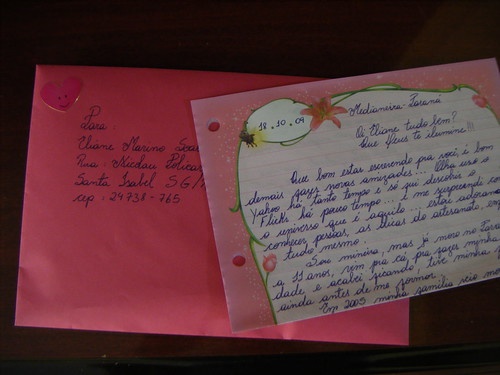 Para:
Eliane Marino
Rua: Nicolau
Santa Isabel SG/
cep: 24738-765
18.10.09
Medianeira-Paraná
Oi Eliane tudo bem?
Que Deus te ilumine
Que bom estar escrevendo pra você, é bom
demais fazer novas amizades... Olha uso o
Yahoo há tanto tempo e só que descobri o
Flickr há pouco tempo... E me surpreendi com
o universo que é aquilo... estou adorando
conhecer pessoas, as dicas do artesanato, en
tudo mesmo.
Sou mineira, mas já moro no Paraná
a 11 anos, vim pra cá pra fazer minha
dade e acabei ficando, tive minha
ainda antes de me formar.
Em 2003 minha família